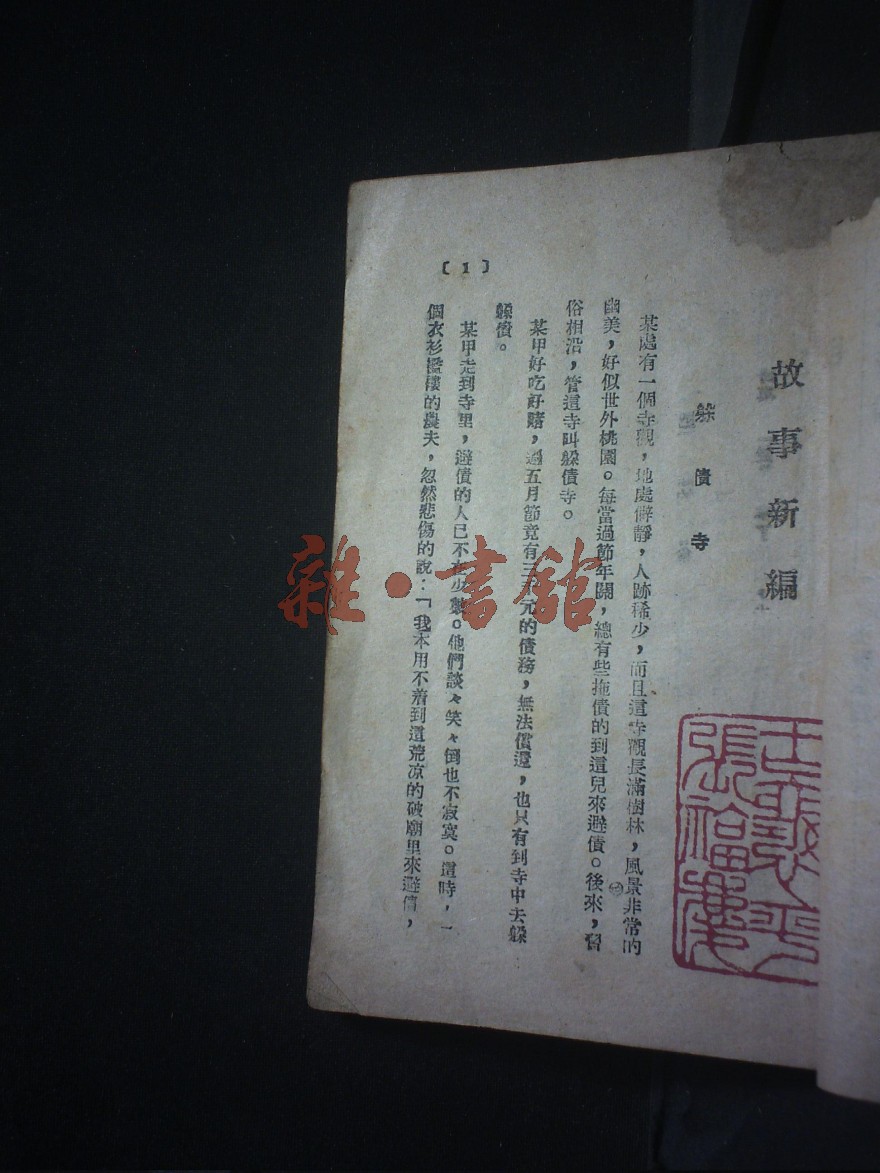 故事新編
躲債寺
某處有一個寺觀，地處僻靜，人跡稀少，而且這寺觀長滿樹林，風景非常的
幽美，好似世外桃園。每當過節年關，總有些拖債的到這兒來避債。後來，習
俗相沿，管這寺叫躲債寺。
某甲好吃好賭，過五月節竟有三千元的債務，無法償還，也只有到寺中去躲
躲債。
某甲走到寺里，避債的人已不在少數。他們談々笑々倒也不寂寞。這時，一
個衣衫襤褸的農夫，忽然悲傷的說：「我本用不着到這荒凉的破廟里來避債，
〔1〕
雜·書館
張福慶